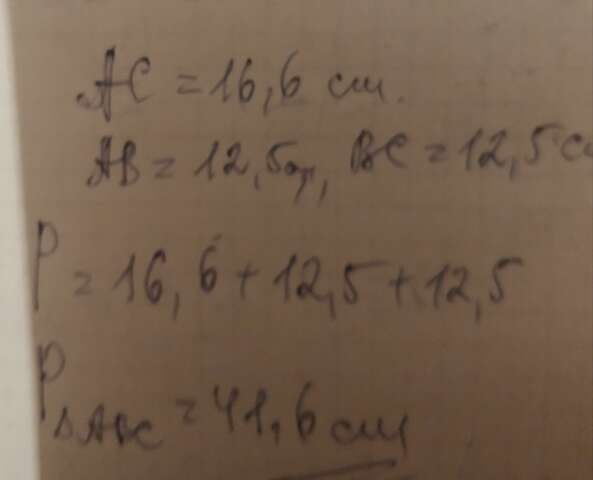 AC = 16,6 см.
AB = 12,5см, BC = 12,5 с
P = 16,6 + 12,5 + 12,5
P△ABC = 41,6 см